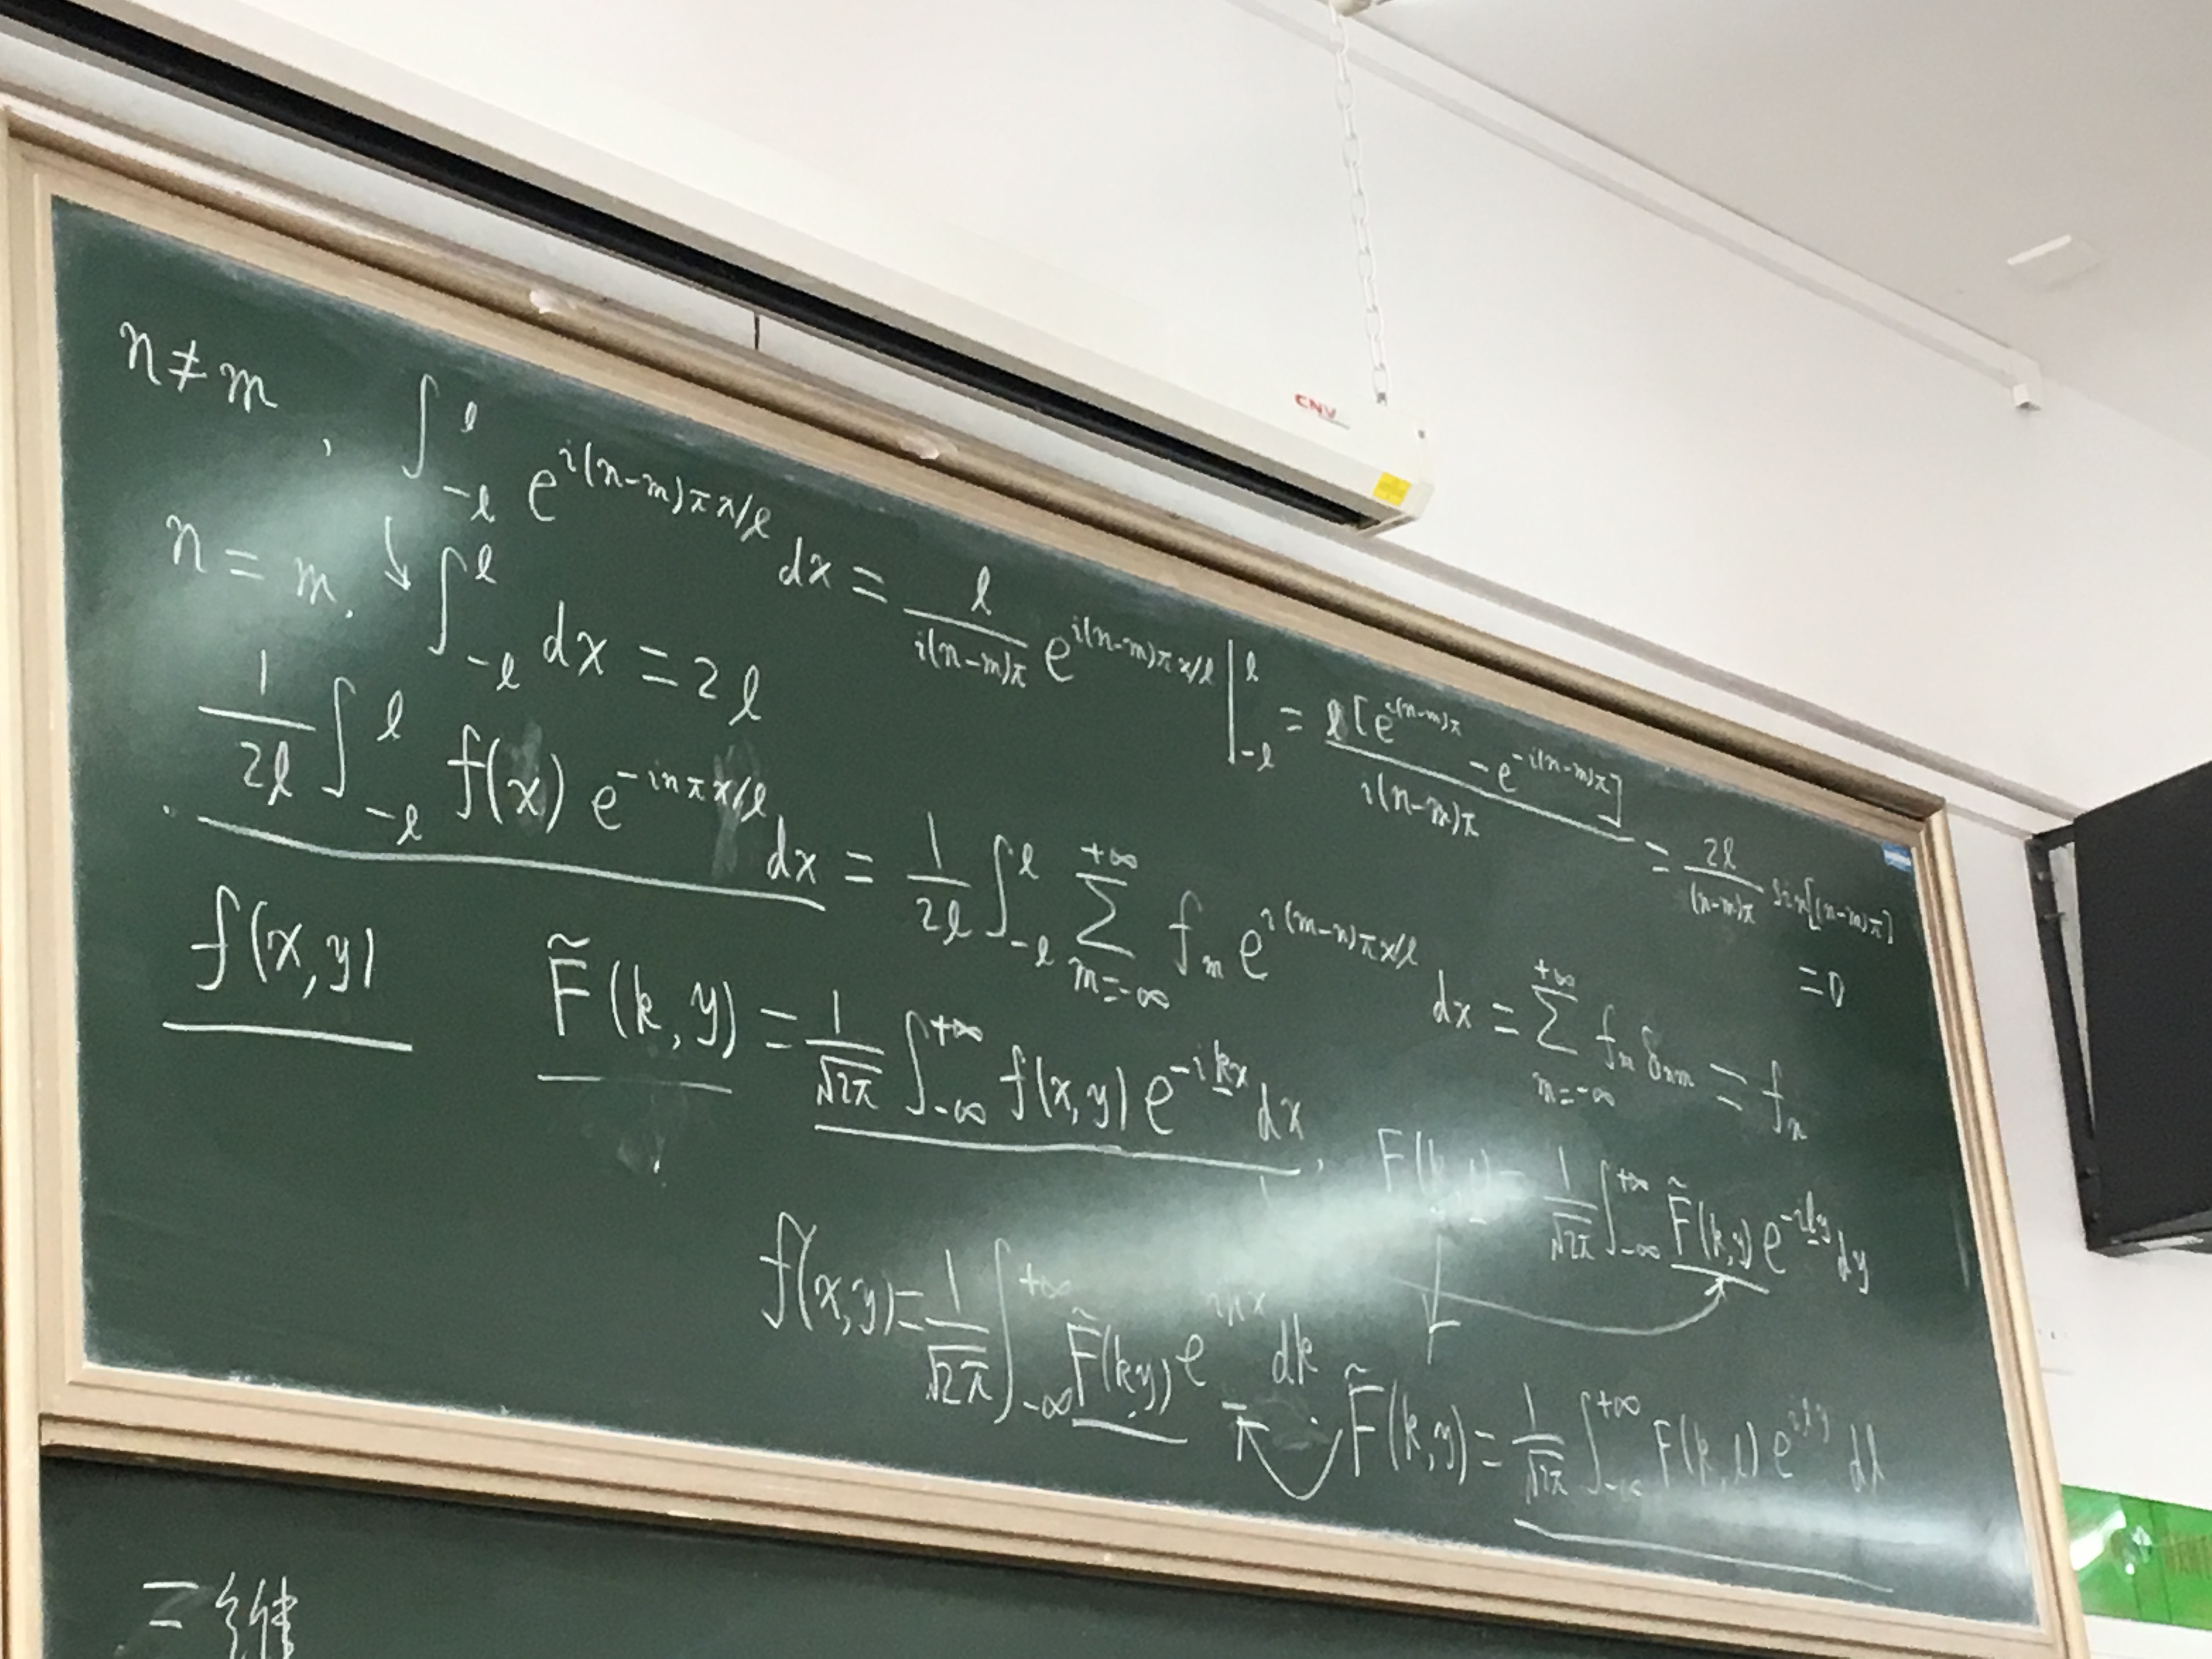 CNV
n≠m, ∫_{-l}^{l} e^{i(n-m)πx/l} dx = \frac{l}{i(n-m)π} e^{i(n-m)πx/l} |_{-l}^{l} = \frac{l[e^{i(n-m)π} - e^{-i(n-m)π}]}{i(n-m)π} = \frac{2l}{(n-m)π} sin[(n-m)π] = 0
n = m, ∫_{-l}^{l} dx = 2l
\frac{1}{2l} ∫_{-l}^{l} f(x) e^{-inπx/l} dx = \frac{1}{2l} ∫_{-l}^{l} ∑_{m=-∞}^{+∞} f_m e^{i(m-n)πx/l} dx = ∑_{m=-∞}^{+∞} f_m δ_{nm} = f_n
f(x,y) \tilde{F}(k,y) = \frac{1}{\sqrt{2π}} ∫_{-∞}^{+∞} f(x,y) e^{-ikx} dx, F(k,l) = \frac{1}{\sqrt{2π}} ∫_{-∞}^{+∞} \tilde{F}(k,y) e^{-ily} dy
f(x,y) = \frac{1}{\sqrt{2π}} ∫_{-∞}^{+∞} \tilde{F}(k,y) e^{ikx} dk \tilde{F}(k,y) = \frac{1}{\sqrt{2π}} ∫_{-∞}^{+∞} F(k,l) e^{ily} dl
二維